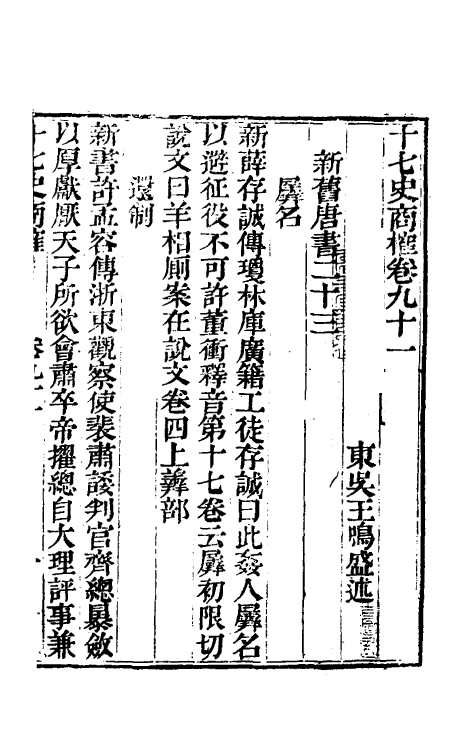 十七史商榷卷九十一
東吳王鳴盛述
新舊唐書二十三
羼名
新薛存誠傳瓊林庫廣籍工徒存誠曰此姦人羼名
以避征役不可許董衝釋音第十七卷云羼初限切
說文曰羊相厠案在說文卷四上羴部
還制
新書許孟容傳浙東觀察使裴肅諉判官齊總暴斂
以厚獻厭天子所欲會肅卒帝擢總自大理評事兼
十七史商榷 卷九十一 一